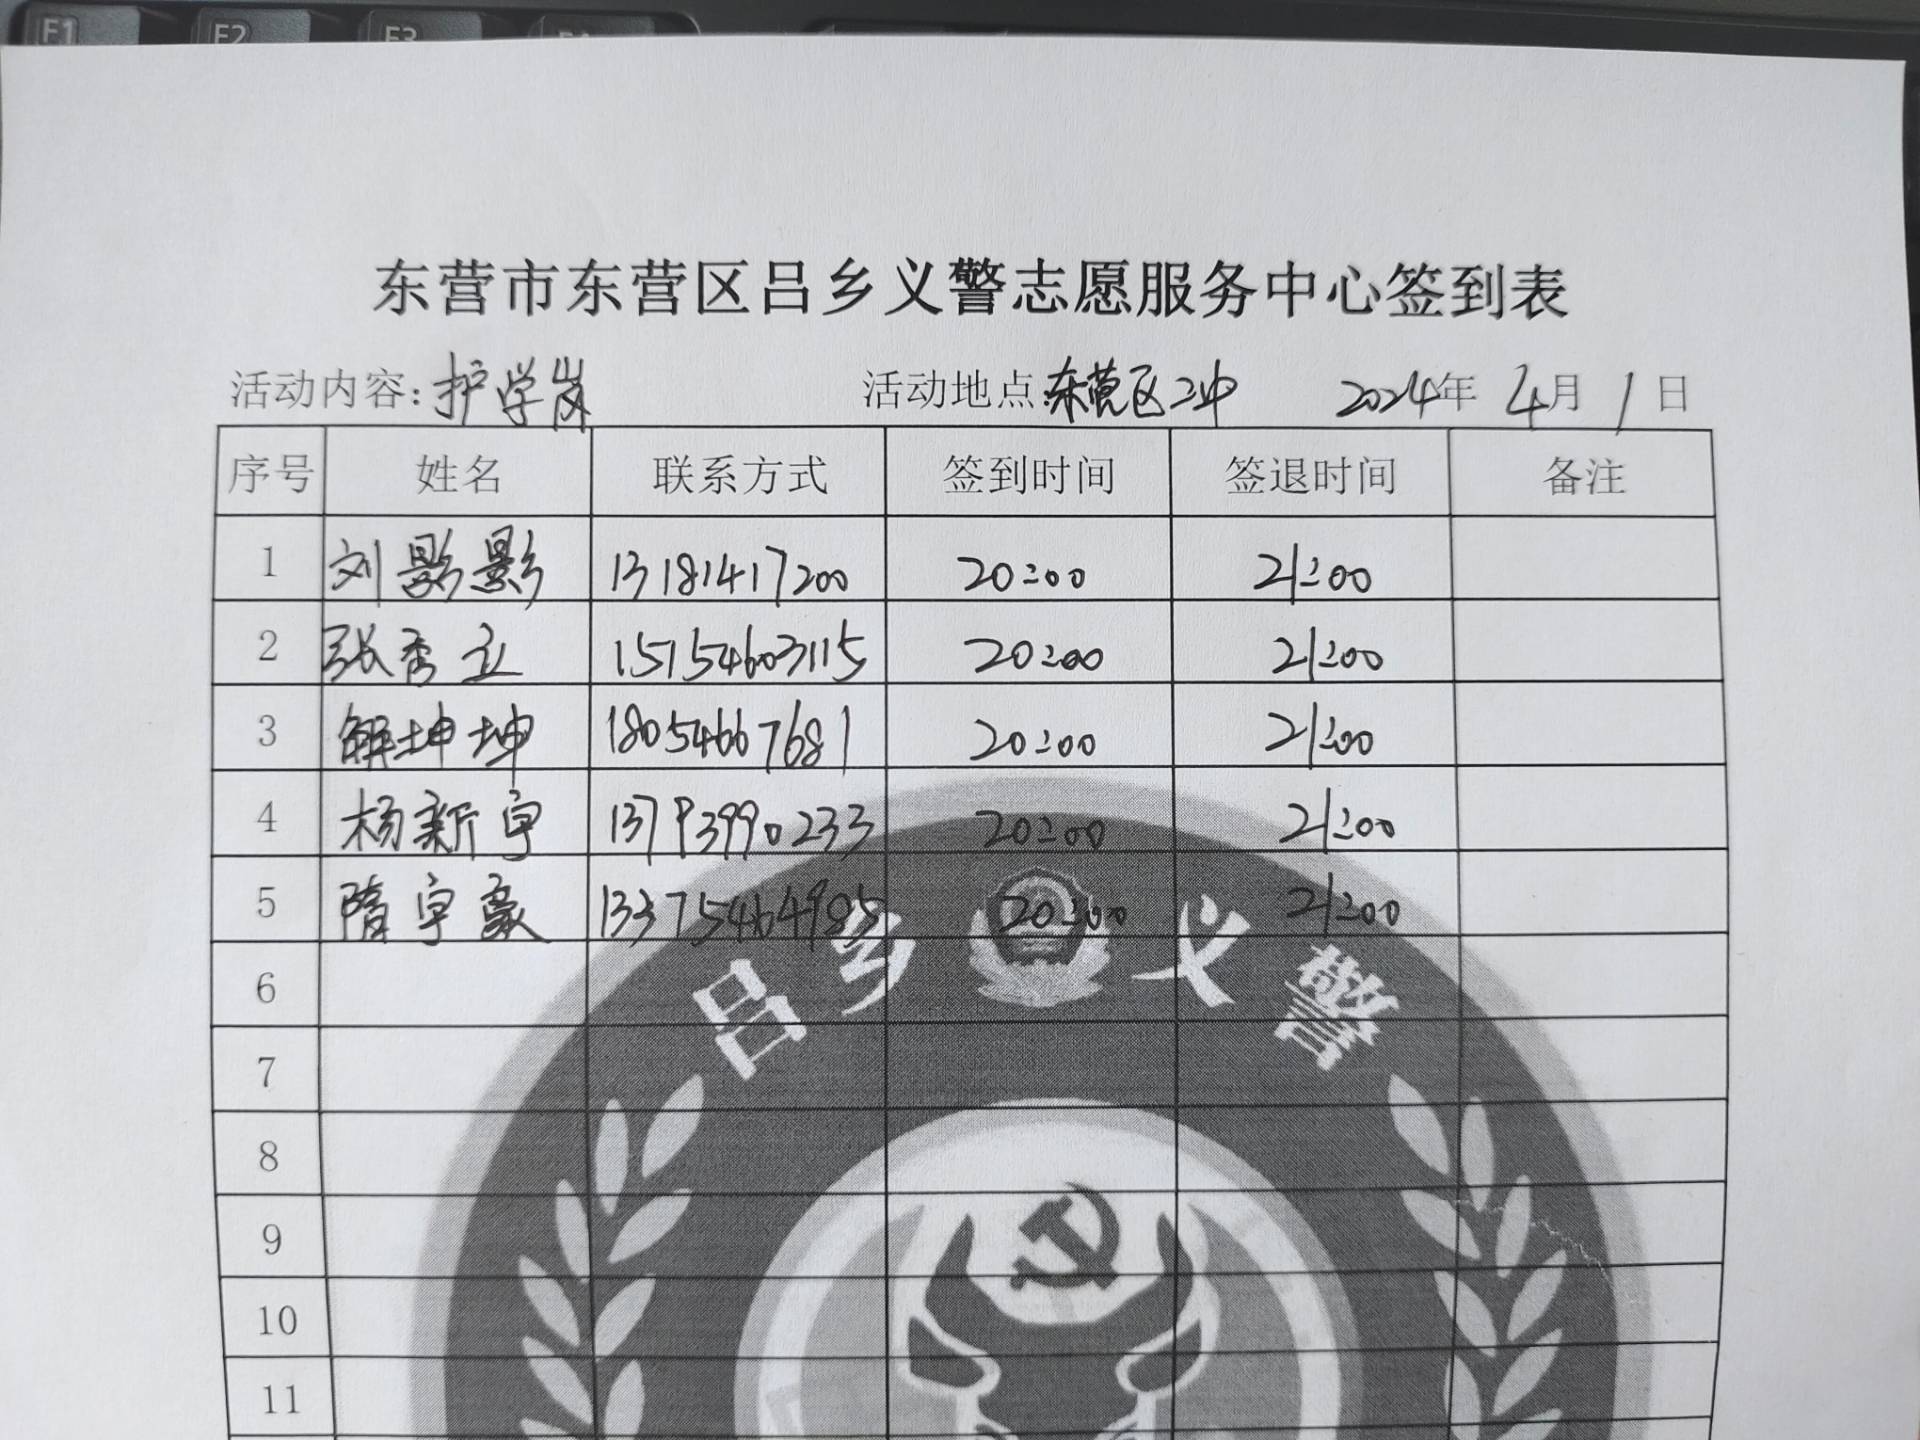 F1 F2 F3
东营市东营区吕乡义警志愿服务中心签到表
活动内容：护学岗 活动地点：东营区二中 2024年 4月 1日
序号 姓名 联系方式 签到时间 签退时间 备注
1 刘影影 13181417200 20:00 21:00
2 张秀立 15154603115 20:00 21:00
3 解坤坤 18054667681 20:00 21:00
4 杨新宇 13793990233 20:00 21:00
5 隋宇豪 13375464985 20:00 21:00
吕乡义警
6
7
8
9
10
11